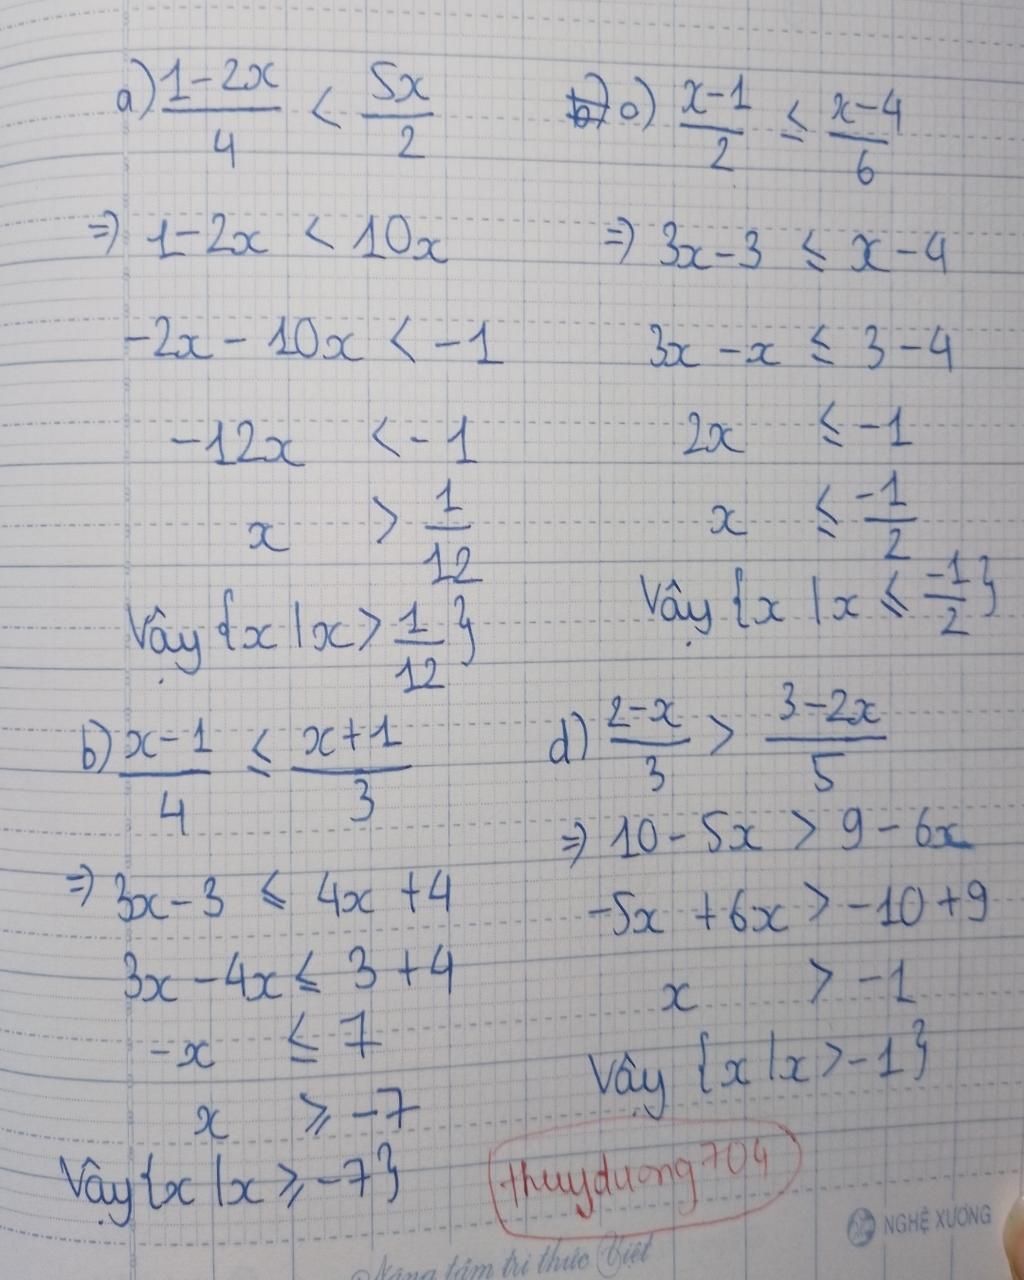 a) (1-2x)/4 < 5x/2
=> 1-2x < 10x
-2x - 10x < -1
-12x < -1
x > 1/12
Vậy {x | x > 1/12}
b) (x-1)/4 ≤ (x+1)/3
=> 3x-3 ≤ 4x+4
3x - 4x ≤ 3+4
-x ≤ 7
x ≥ -7
Vậy {x | x ≥ -7}
c) (x-1)/2 ≤ (x-4)/6
=> 3x-3 ≤ x-4
3x - x ≤ 3-4
2x ≤ -1
x ≤ -1/2
Vậy {x | x ≤ -1/2}
d) (2-x)/3 > (3-2x)/5
=> 10-5x > 9-6x
-5x + 6x > -10+9
x > -1
Vậy {x | x > -1}
thuyduong704
NGHỆ XƯƠNG
Nâng tầm tri thức Việt